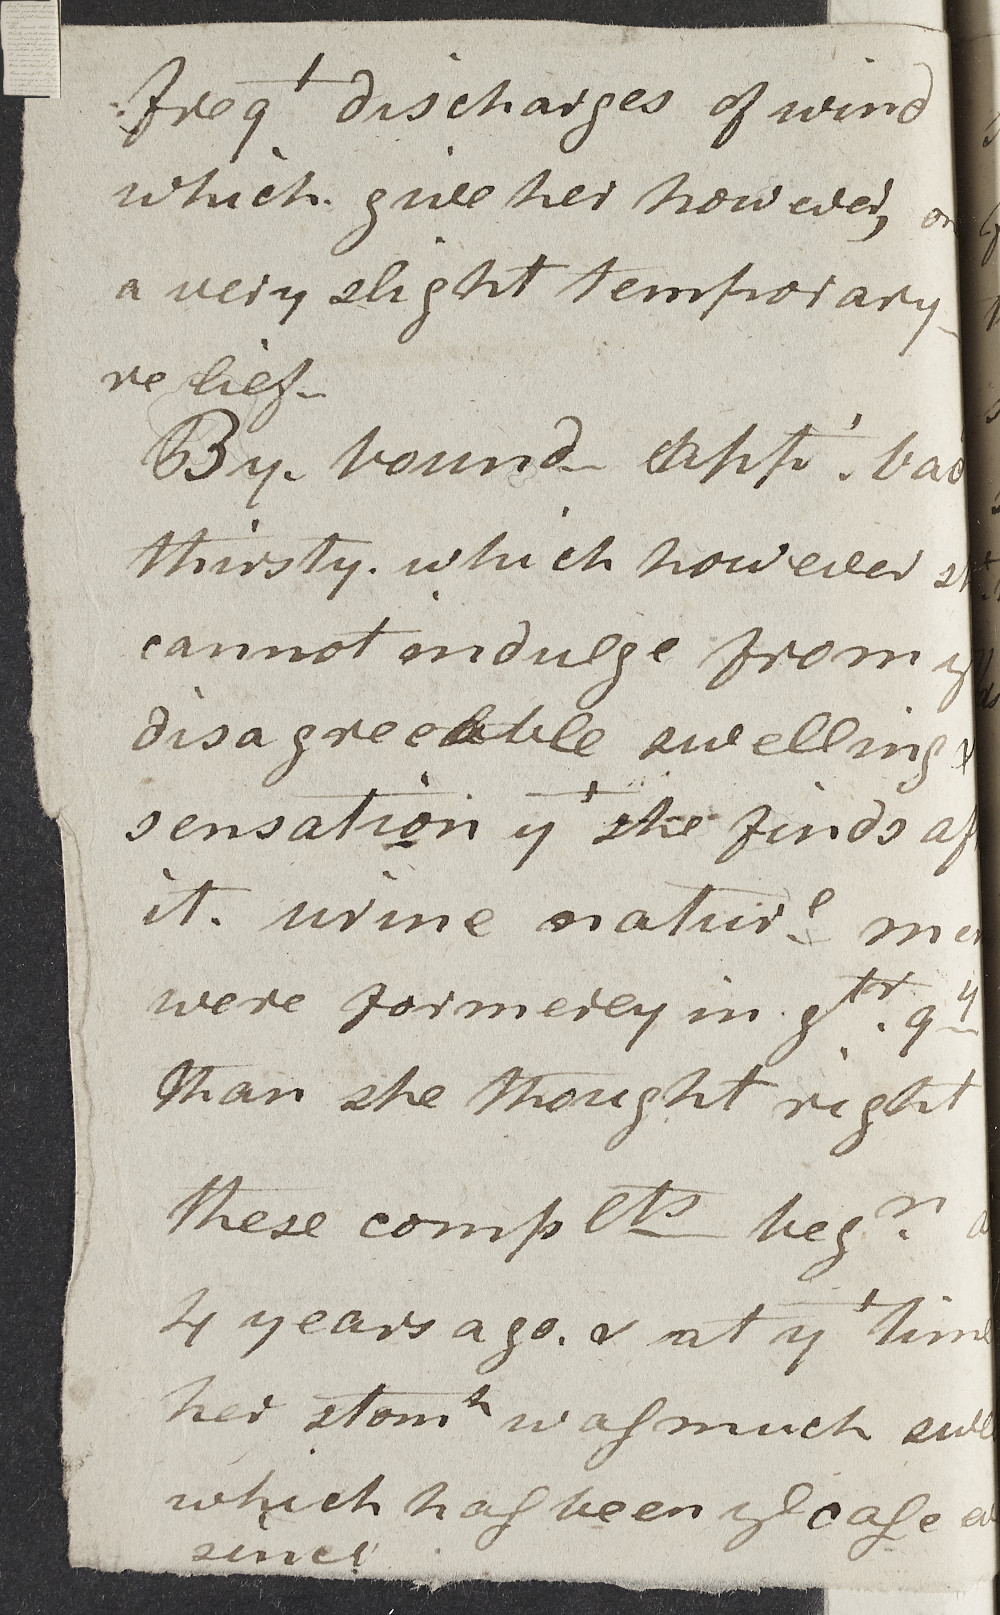 freqt discharges of wind
which give her however, on
a very slight temporary
relief
By. bound appt. bad
thirsty. which however s
cannot indulge from y
disagreeable swelling &
sensation yt she finds af
it. urine nature. men
were formerly in gtr. qy
than she thought right
these complts begn. a
4 years ago. & at yt time
her stomh was much swel
which has been ye case e
since